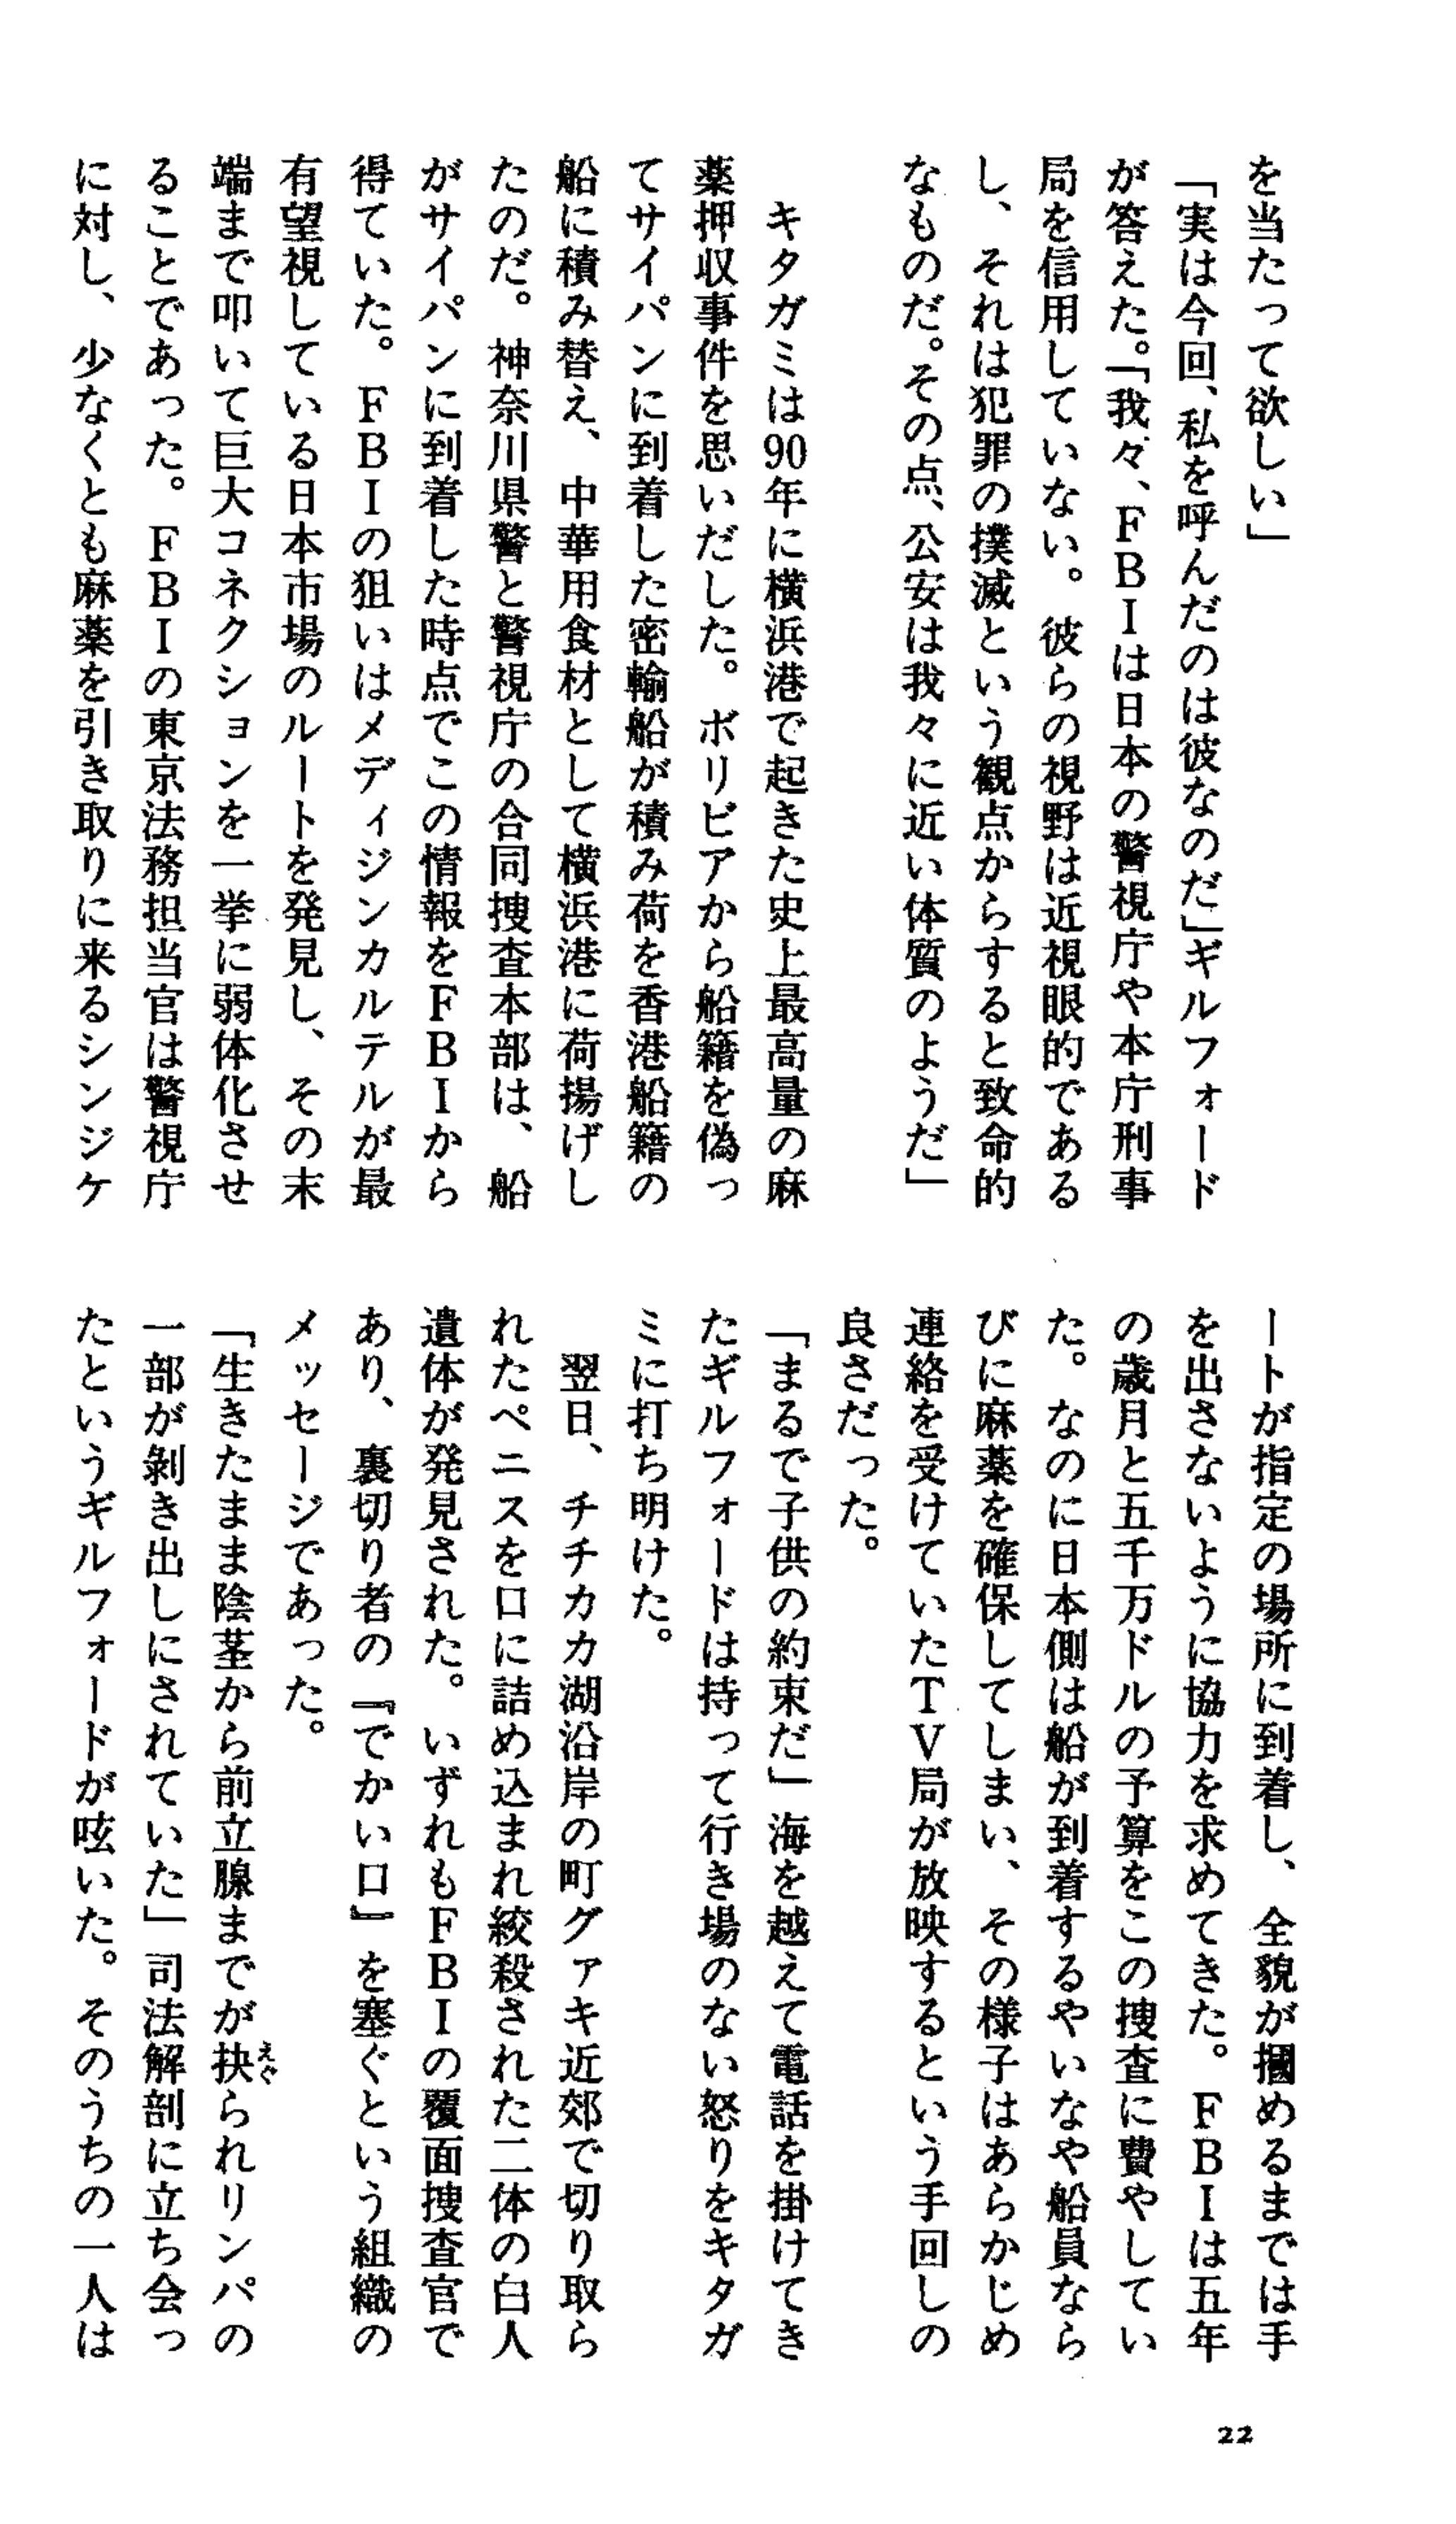 を当たって欲しい」
「実は今回、私を呼んだのは彼なのだ」ギルフォード
が答えた。「我々、ＦＢＩは日本の警視庁や本庁刑事
局を信用していない。彼らの視野は近視眼的である
し、それは犯罪の撲滅という観点からすると致命的
なものだ。その点、公安は我々に近い体質のようだ」
キタガミは90年に横浜港で起きた史上最高量の麻
薬押収事件を思いだした。ボリビアから船籍を偽っ
てサイパンに到着した密輸船が積み荷を香港船籍の
船に積み替え、中華用食材として横浜港に荷揚げし
たのだ。神奈川県警と警視庁の合同捜査本部は、船
がサイパンに到着した時点でこの情報をＦＢＩから
得ていた。ＦＢＩの狙いはメディジンカルテルが最
有望視している日本市場のルートを発見し、その末
端まで叩いて巨大コネクションを一挙に弱体化させ
ることであった。ＦＢＩの東京法務担当官は警視庁
に対し、少なくとも麻薬を引き取りに来るシンジケ
ートが指定の場所に到着し、全貌が摑めるまでは手
を出さないように協力を求めてきた。ＦＢＩは五年
の歳月と五千万ドルの予算をこの捜査に費やしてい
た。なのに日本側は船が到着するやいなや船員なら
びに麻薬を確保してしまい、その様子はあらかじめ
連絡を受けていたＴＶ局が放映するという手回しの
良さだった。
「まるで子供の約束だ」海を越えて電話を掛けてき
たギルフォードは持って行き場のない怒りをキタガ
ミに打ち明けた。
翌日、チチカカ湖沿岸の町グァキ近郊で切り取ら
れたペニスを口に詰め込まれ絞殺された二体の白人
遺体が発見された。いずれもＦＢＩの覆面捜査官で
あり、裏切り者の『でかい口』を塞ぐという組織の
メッセージであった。
「生きたまま陰茎から前立腺までが抉られリンパの
えぐ
一部が剝き出しにされていた」司法解剖に立ち会っ
たというギルフォードが呟いた。そのうちの一人は
22